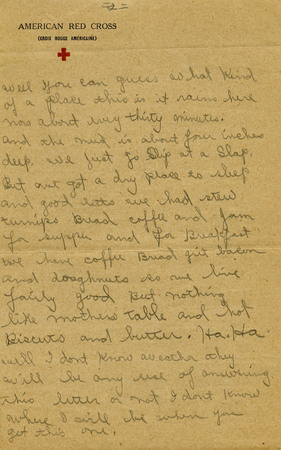 -2-
AMERICAN RED CROSS
(CROIX ROUGE AMERICAINE)
well you can guess what kind
of a place this is it rains here
now about every thirty minutes.
and the mud is about four inches
deep. we just go Slip at a Slap.
But out got a dry place to sleep
and good we had stew
turnips Bread coffee and Jam
for supper and for Breakfast
we have coffee Bread bacon
and doughnuts so we live
fairly good But nothing
like mothers table and hot
Biscuts and butter. Ha. Ha.
well I dont know weather they
will be any use of answering
this letter or not I dont know
where I will be when you
get this one.